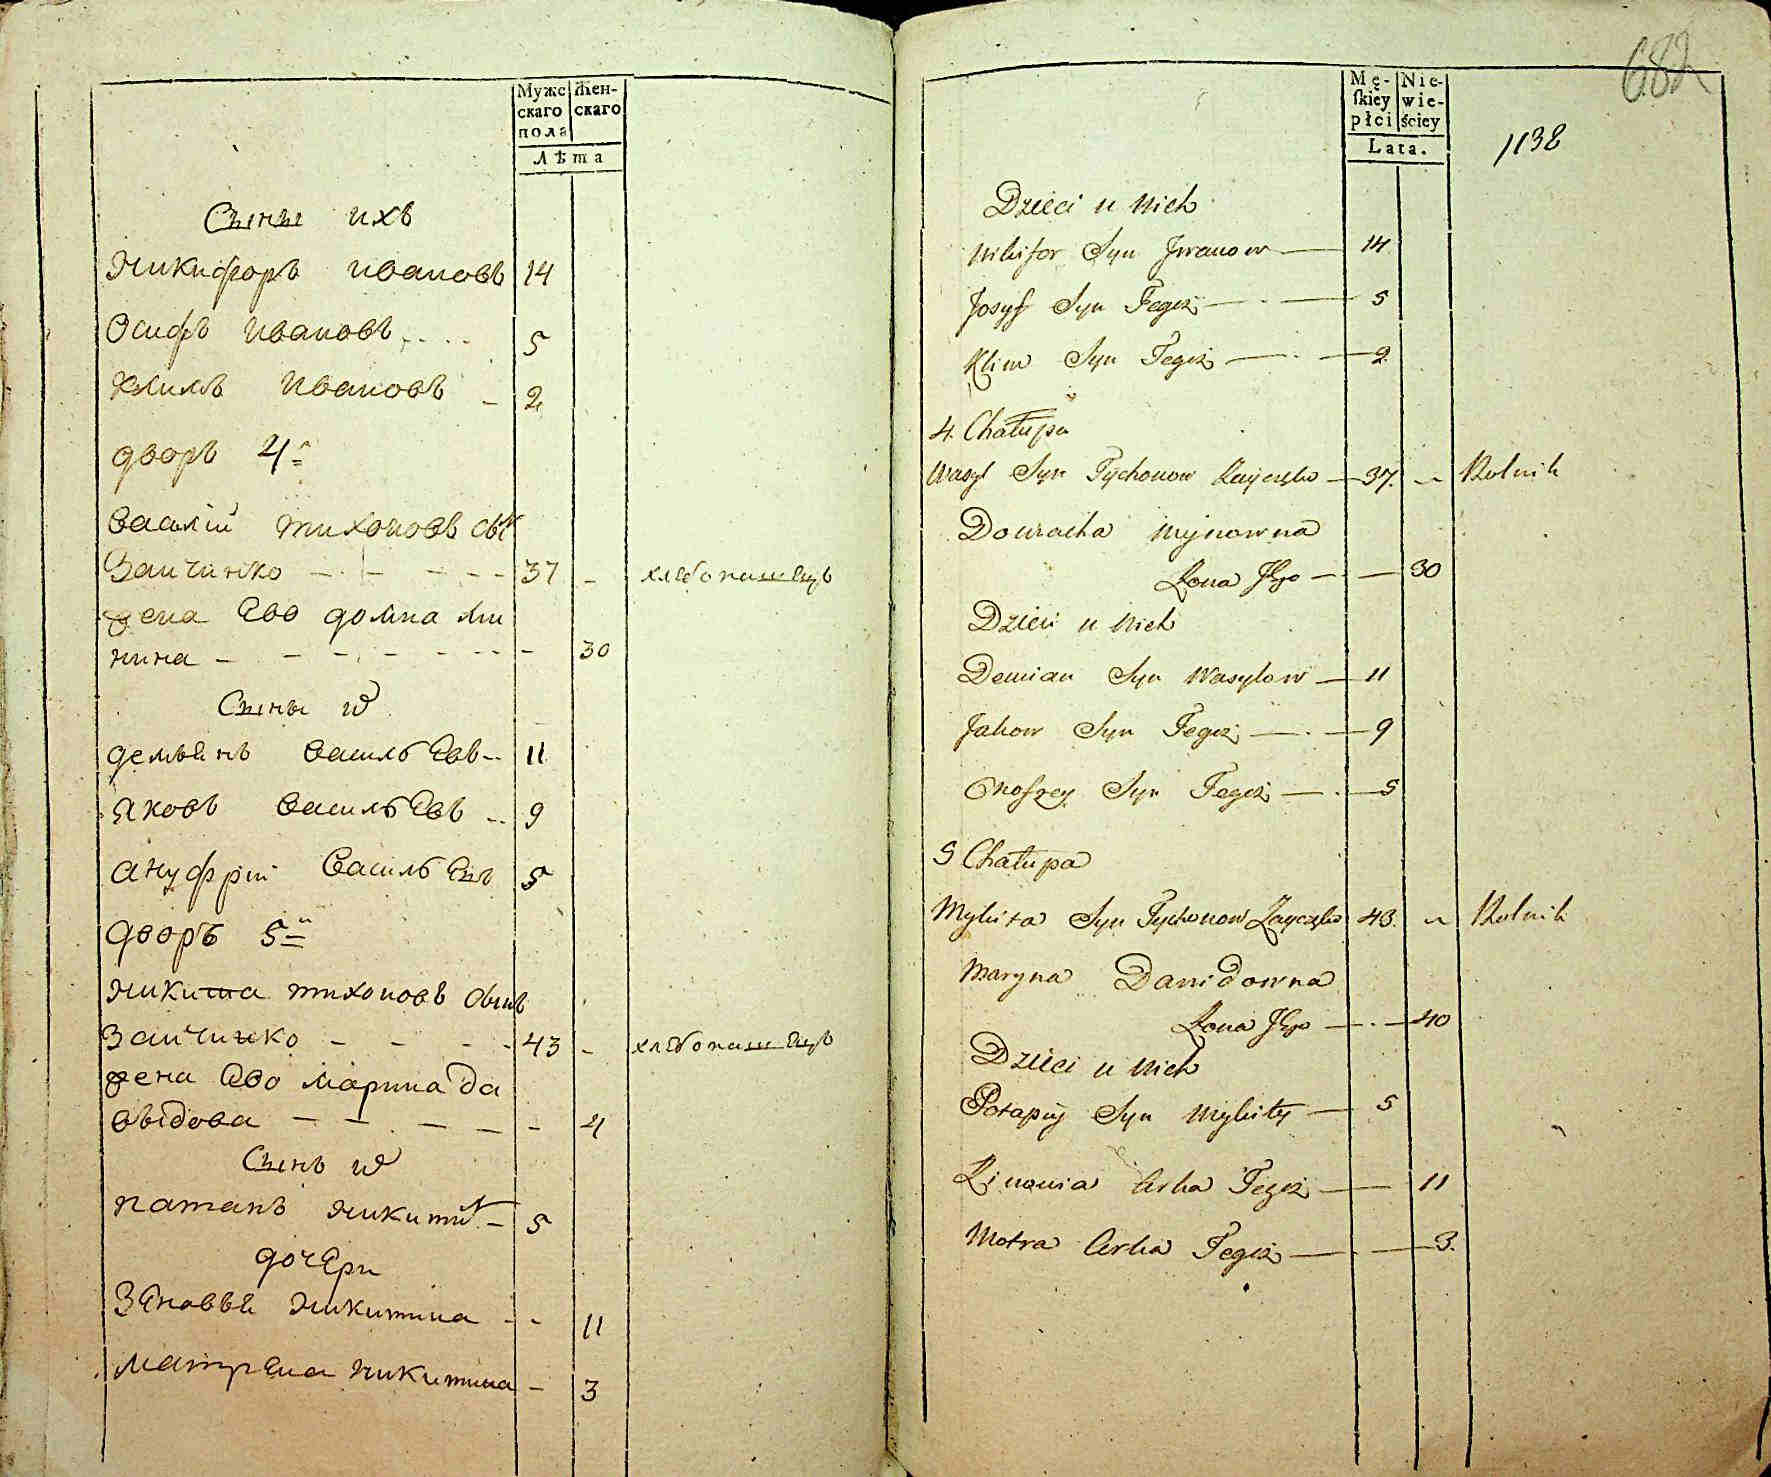 Мужс Жен-
скаго скаго
пола
Лѣта
Сыны ихъ
Никифоръ Ивановъ 14
Осифъ Ивановъ 5
Климъ Ивановъ 2
дворъ 4й
Василiй Тихоновъ сынъ
Заичинко 37 хлебопашецъ
жена Ево домна Ми
нина 30
Сыны их
демьянъ Васильевъ 11
Яковъ Васильевъ 9
Ануфрiй Васильевъ 5
дворъ 5й
Никита Тихоновъ Сынъ
Заичинко 43 хлебопашецъ
жена Ево Марина Да
выдова 4
Сынъ их
Патапъ Никитин 5
дочери
Зеновея Никитина 11
Матрена Никитина 3
682
Mę- Nie-
ſkiey wie-
płci ściey
Lata.
1138
Dzieci u Nich
Nikifor Syn Jwanow 14
Josyf Syn Tegoż 5
Klim Syn Tegoż 2
4. Chałupa
Wasyl Syn Tychonow Zayczęko 37. Rolnik
Domacha Mynowna
Zona Jego 30
Dzieci u Nich
Demian Syn Wasylow 11
Jakow Syn Tegoż 9
Onofrey Syn Tegoż 5
5 Chałupa
Mykita Syn Tychonow Zayczęko 43. Rolnik
Maryna Dawidowna
Zona Jego 40
Dzieci u Nich
Potapij Syn Mykity 5
Zinowia Corka Tegoż 11
Motra Corka Tegoż 3.